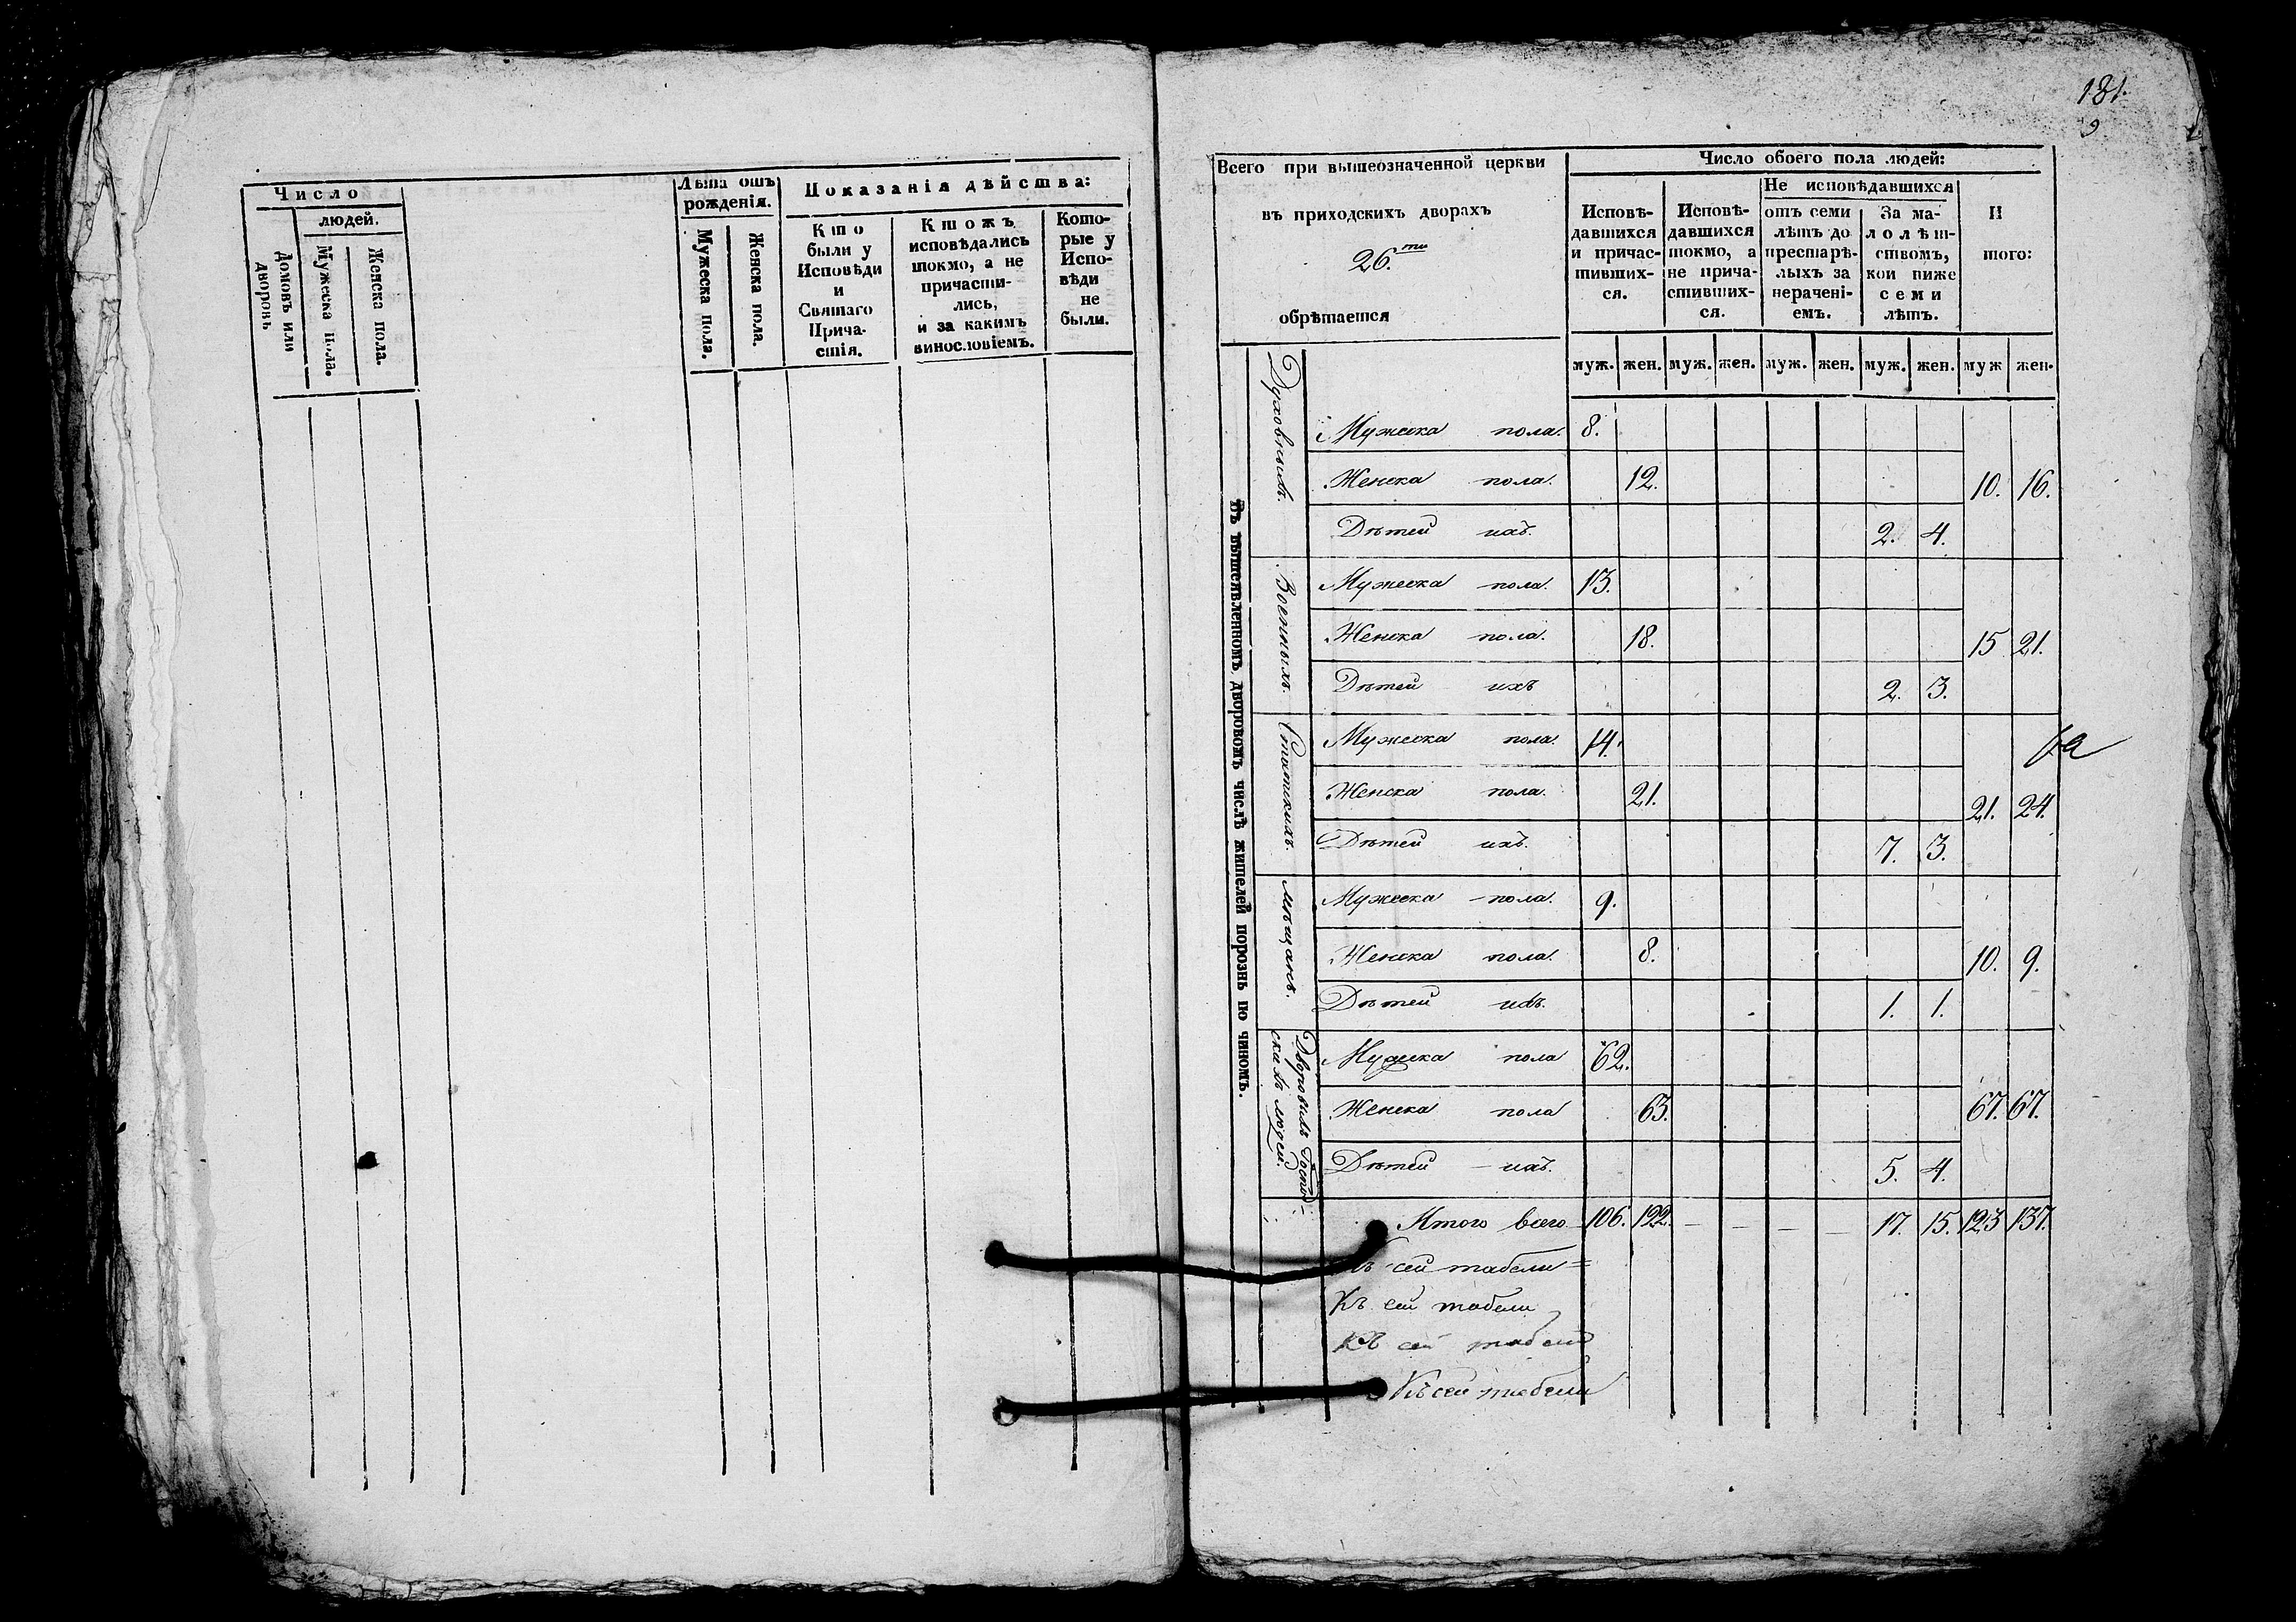 Число
людей.
Домовъ или
дворовъ
Мужеска пола.
Женска пола.
Лѣта отъ
рожденія.
Мужеска пола.
Женска пола.
Показанія дѣйства:
Кто
были у
Исповѣди
и
Святаго
Прича-
стія.
Ктожъ
исповѣдались
токмо, а не
причасти-
лись,
и за какимъ
винословіемъ.
Кото-
рые у
Испо-
вѣди
не
были.
181.
9
Всего при вышеозначенной церкви
въ приходскихъ дворахъ
26.ти
обрѣтается
Число обоего пола людей:
Исповѣ-
давшихся
и причас-
тивших-
ся.
Исповѣ-
давшихся
токмо, а
не прича-
стивших-
ся.
Не исповѣдавшихся
отъ семи
лѣтъ до
престарѣ-
лыхъ за
нерачені-
емъ.
За ма-
лолѣт-
ствомъ,
кои ниже
семи
лѣтъ.
И
того:
муж. жен. муж. жен. муж. жен. муж. жен. муж жен.
Въ вышеявленномъ, дворовомъ числѣ жителей порознь по чиномъ.
Духовныхъ.
Мужеска пола. 8.
Женска пола. 12. 10. 16.
Дѣтей ихъ. 2. 4.
Военныхъ.
Мужеска пола. 13.
Женска пола. 18. 15 21.
Дѣтей ихъ 2. 3.
Статскихъ.
Мужеска пола. 14.
Женска пола. 21. 21. 24.
Дѣтей ихъ. 7. 3.
Мѣщанъ.
Мужеска пола. 9.
Женска пола. 8. 10. 9.
Дѣтей ихъ. 1. 1.
Дворовыхъ Господ-
скихъ людей.
Мужеска пола 62.
Женска пола 63. 67. 67.
Дѣтей ихъ. 5. 4.
Итого всего 106. 122. — — — — 17. 15. 123 137.
сей табели=
Къ сей табели
Къ сей табели
Къ сей табели